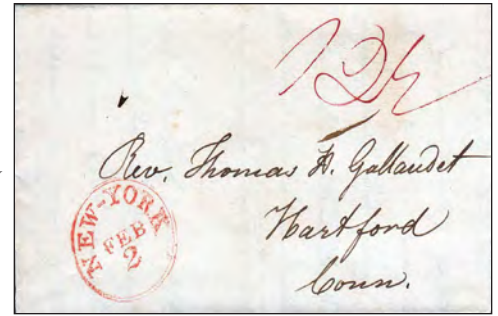 12½
Rev. Thomas H. Gallaudet
Hartford
Conn.
NEW-YORK
FEB
2